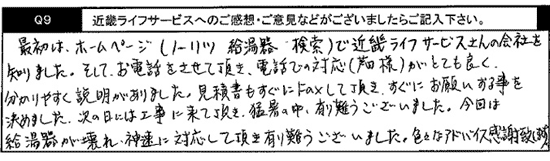 Q9 近畿ライフサービスへのご感想・ご意見などがございましたらご記入下さい。
最初は、ホームページ(ノーリツ 給湯器 検索)で近畿ライフサービスさんの会社を
知りました。そして、お電話をさせて頂き、電話での対応( 様)がとても良く、
分かりやすく説明がありました。見積書もすぐにFaxして頂き、すぐにお願いする事を
決めました。次の日には工事に来て頂き、猛暑の中、有難うございました。今回は
給湯器が壊れ、神速に対応して頂き有り難うございました。色々なアドバイス感謝致します